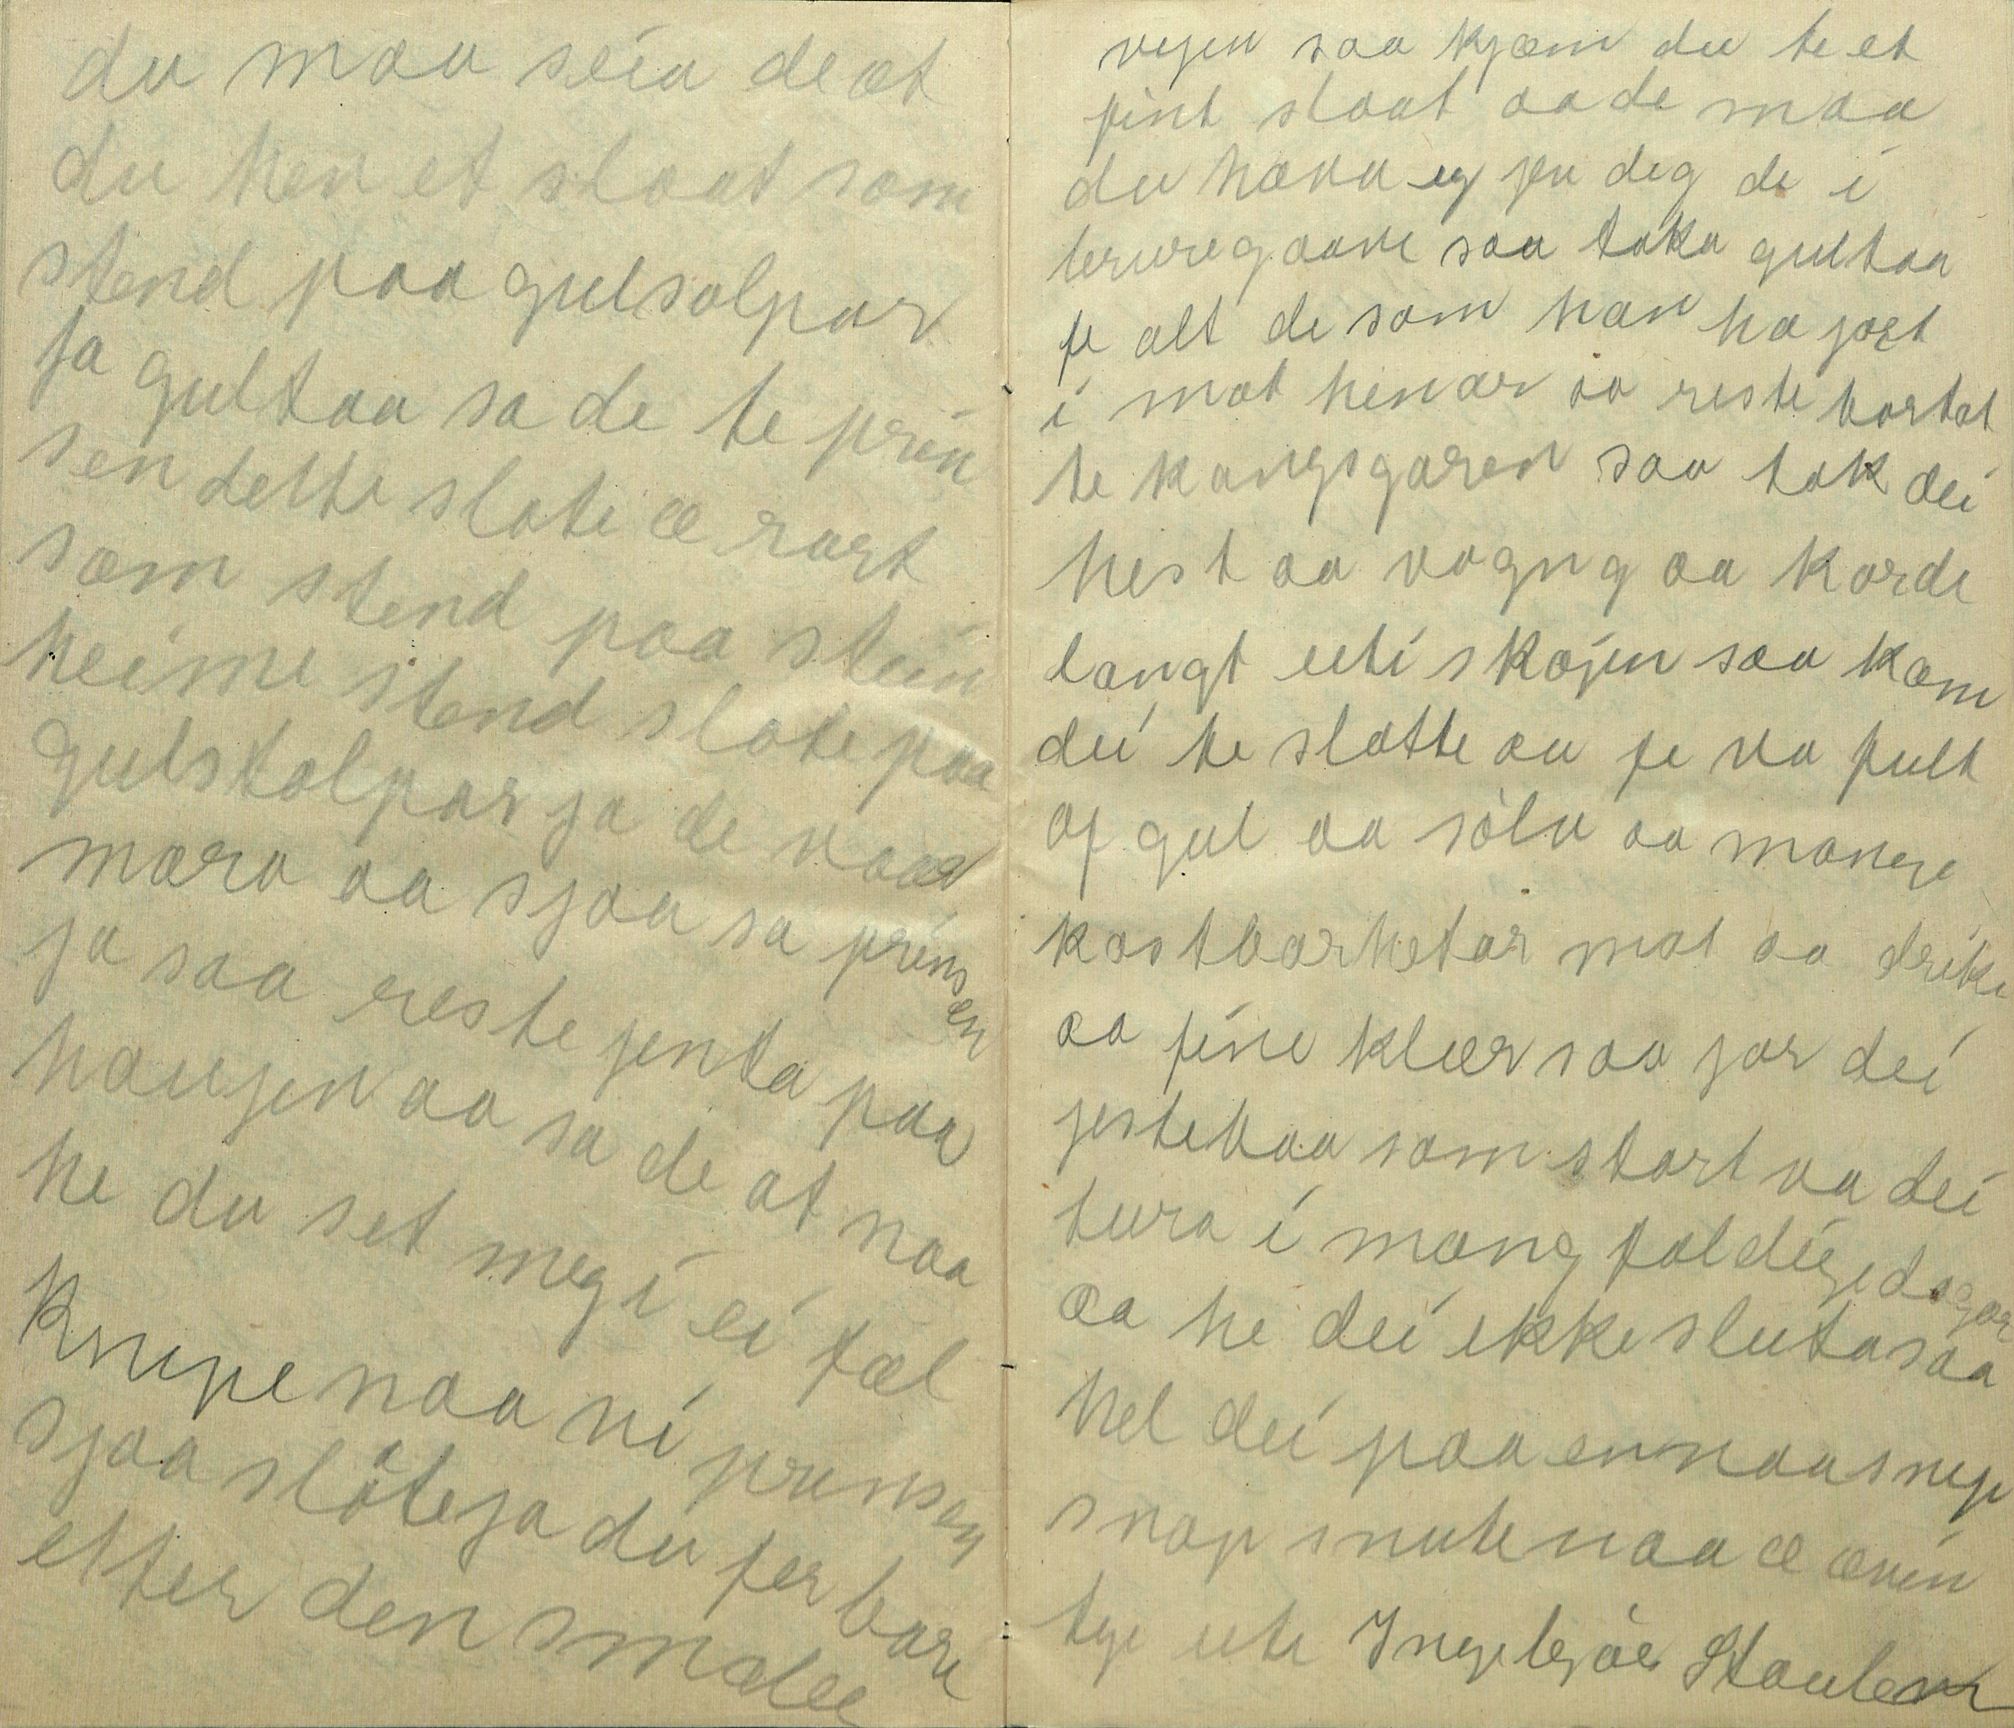 du maa seia de at
du hev et slaat som
stend paa gulsolpar
ja gultaa sa de te prin
sen dette slote æ rart
som stend paa stein
heime stend slote paa
gulstolpar ja de vaa
moro aa sjaa sa prinsen
ja saa reste jenta paa
haujen aa sa de at naa
he du set meg i ei fæl
knipe naa vi prinsen
sjaa slote ja du fer bare
etter den smale
vejen saa kjæm du te et
fint slaat aa de maa
du hava eg jev deg de i
bruregaave saa taka gultaa
fe alt de som han ha jort
i mot henar aa reste bortat
te kongsgaren saa tok dei
hest aa vogng aa korde
langt uti skojen saa kom
dei te slotte aa je va fult
af gul aa sølv aa mange
kostbarhetar mat aa drikke
aa fine klær saa jor dei
jestebaa som stort va dei
tura i mang foldige dogar
aa he dei ikke sluta saa
hel dei paa en naa snip
snap snute naa æ æven
tye ute Ingebjør Staulen